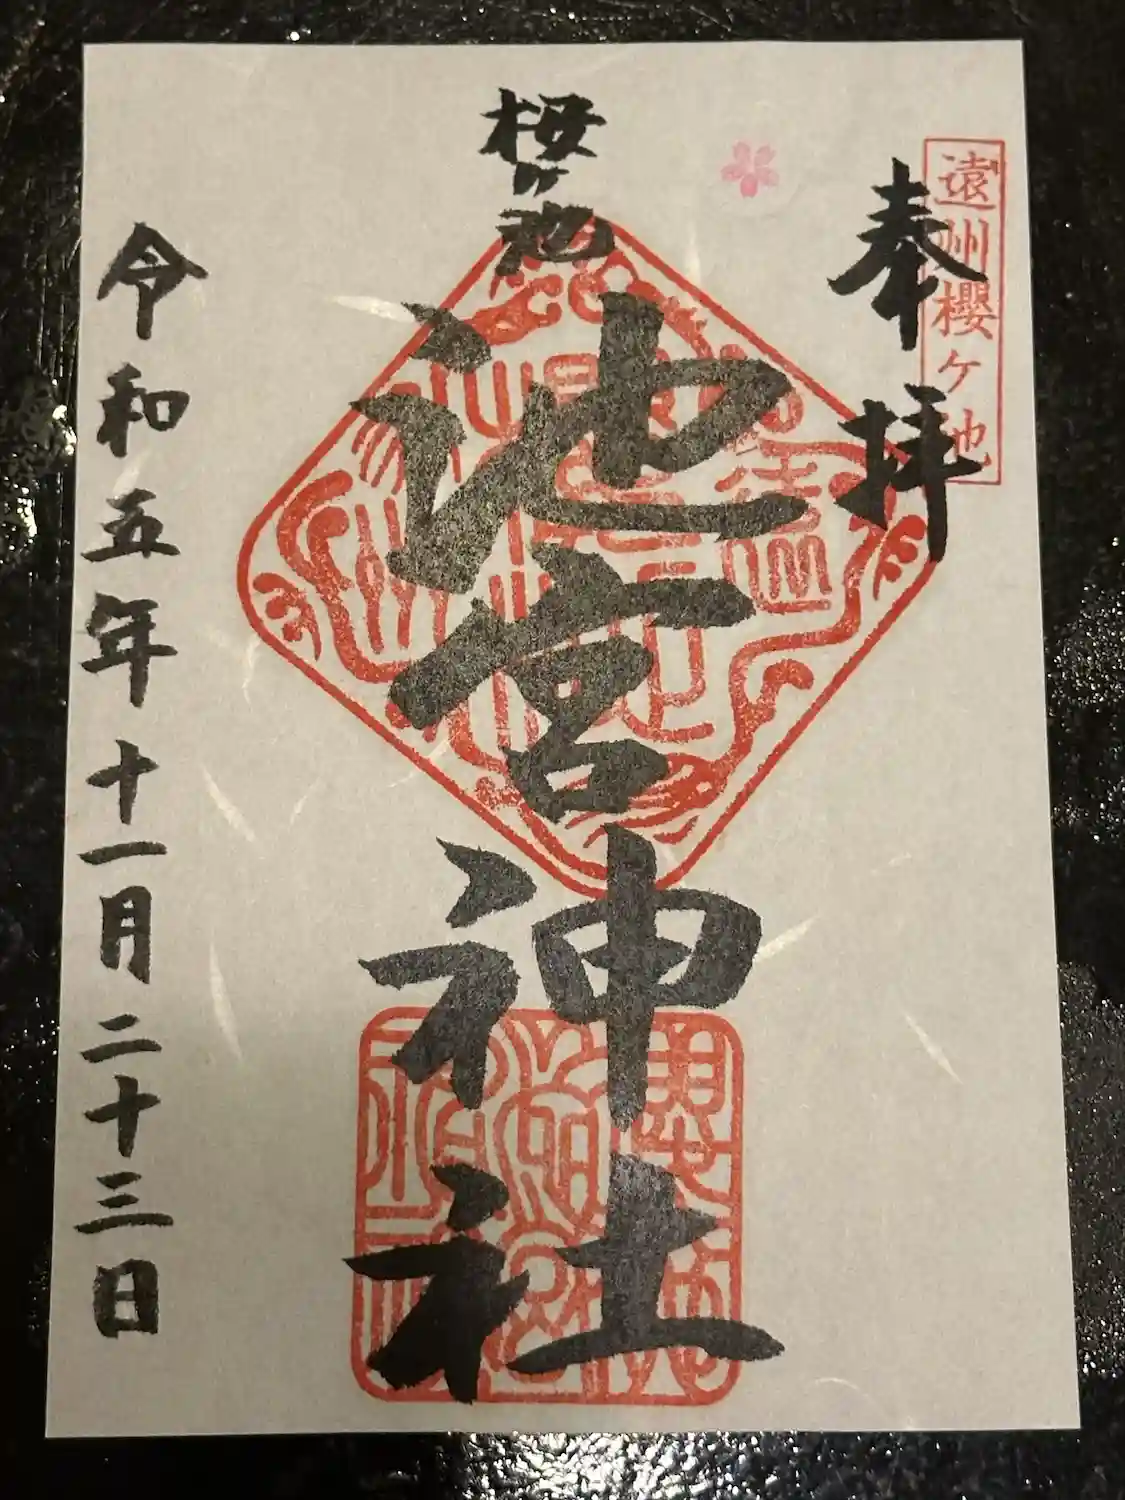 遠州櫻ケ池
奉拝
桜ヶ池
池宮神社
令和五年十一月二十三日